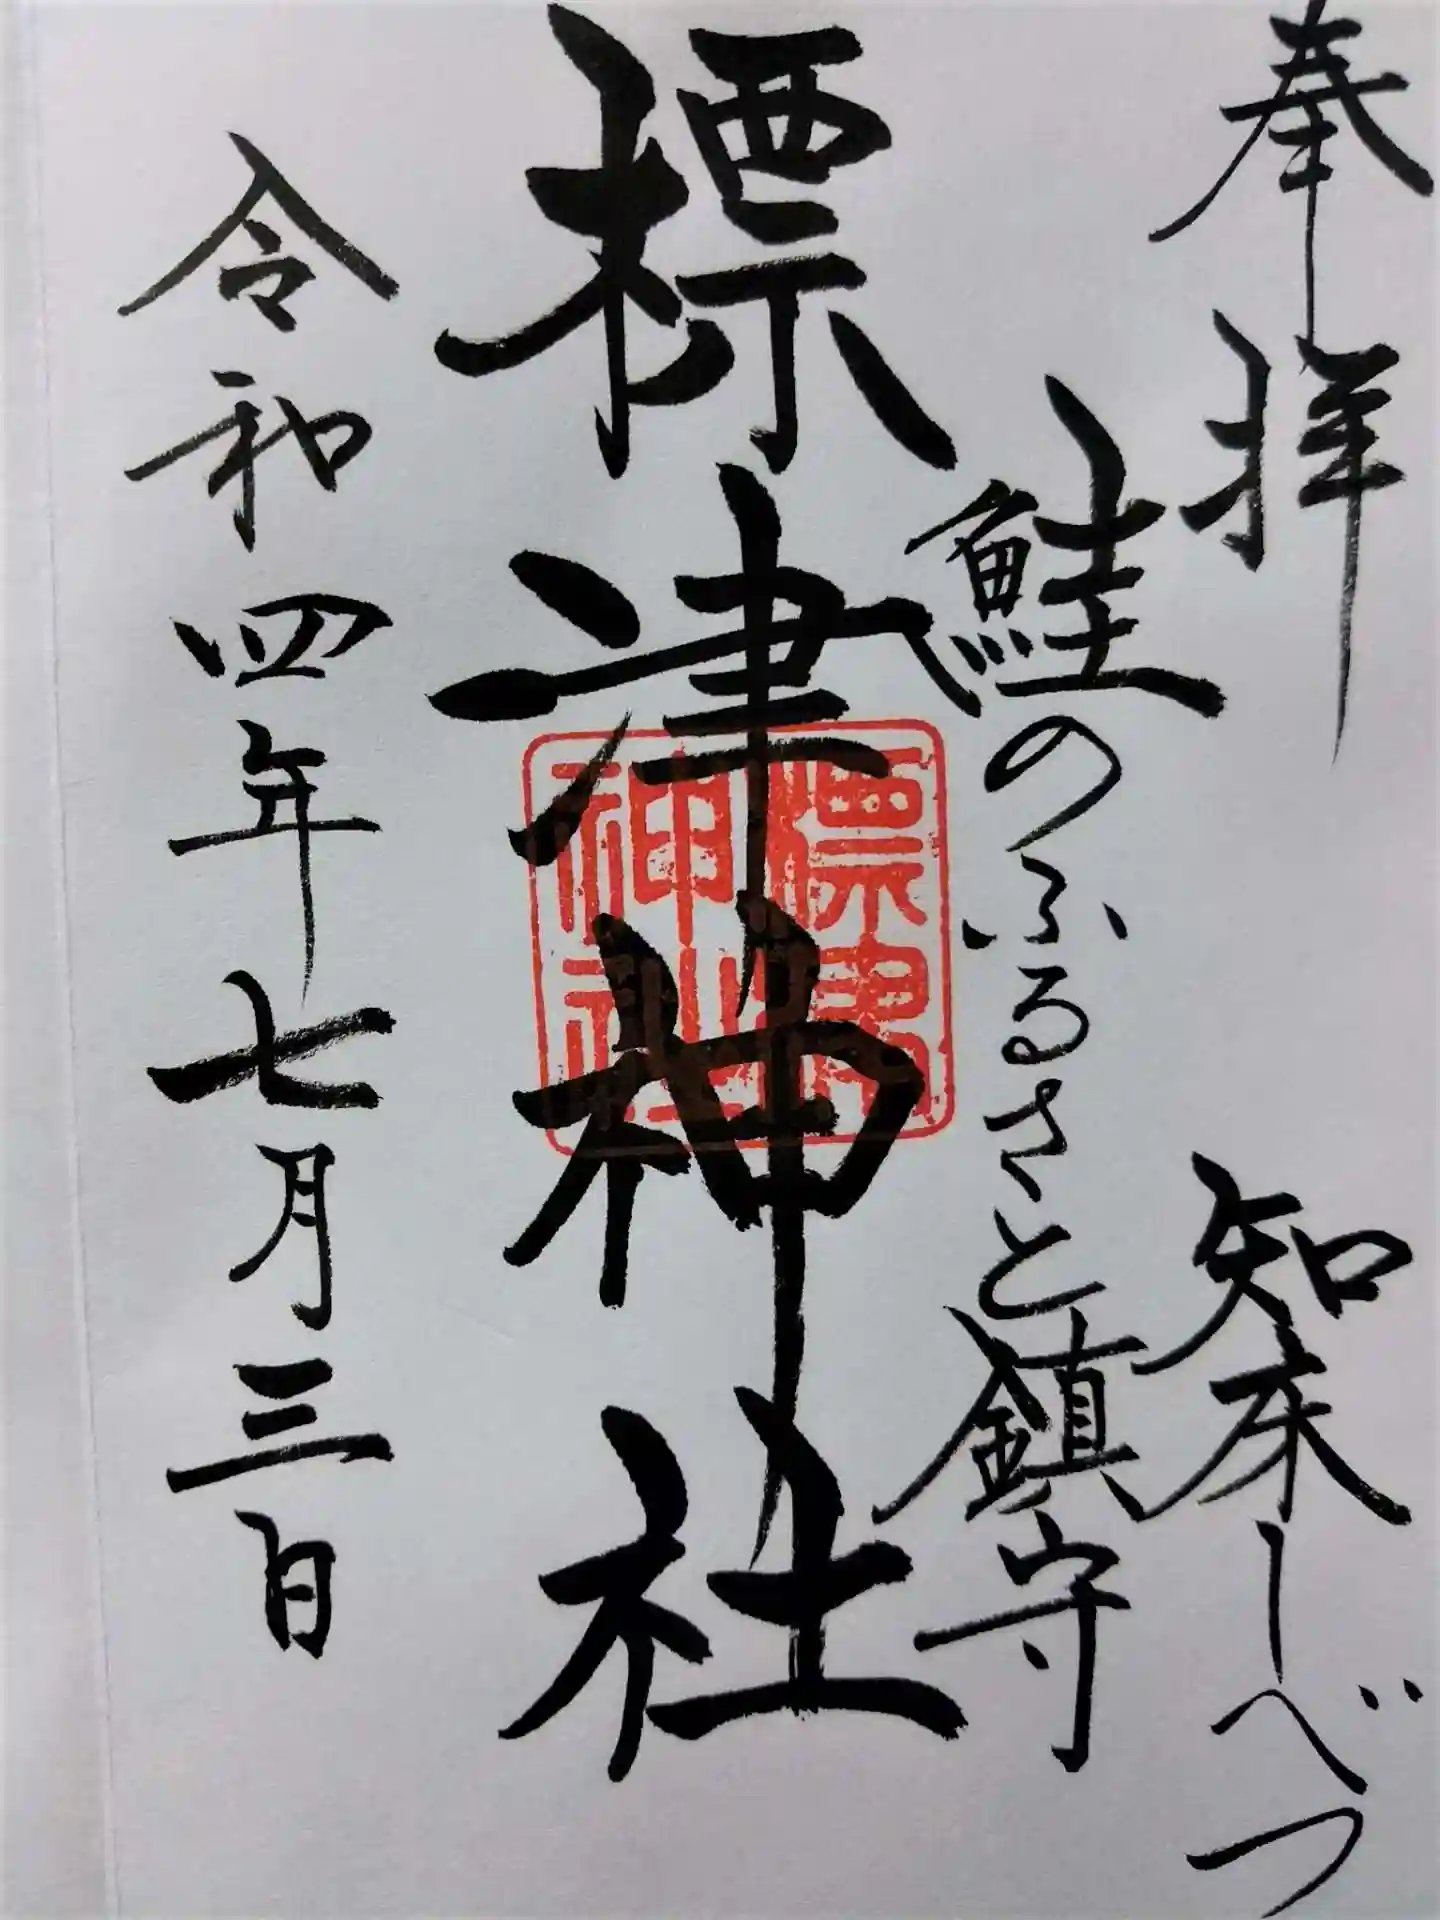 奉拝
知床しべつ
鮭のふるさと鎮守
標津神社
標津
神社
令和四年七月三日